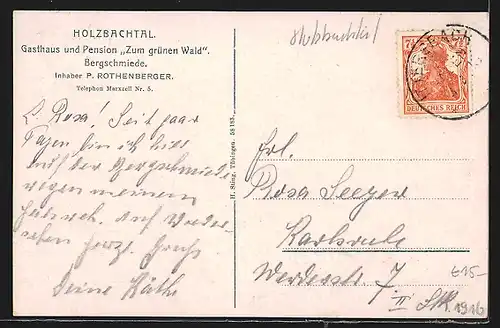 HOLZBACHTAL.
Gasthaus und Pension „Zum grünen Wald".
Bergschmiede.
Inhaber P. ROTHENBERGER.
Telephon Marxzell Nr. 5.
L. Rosa! Seit paar
Tagen bin ich hier
auf der Bergschmiede
wegen meinem
auf Wieder-
sehen herzl. Gruß
Deine Käthe
H. Sting, Tübingen. 58183.
Holzbachtal
7½
DEUTSCHES REICH
Frl.
Rosa Seeger
Karlsruhe
Werderstr. 7.
II Stk.
€15-
1916